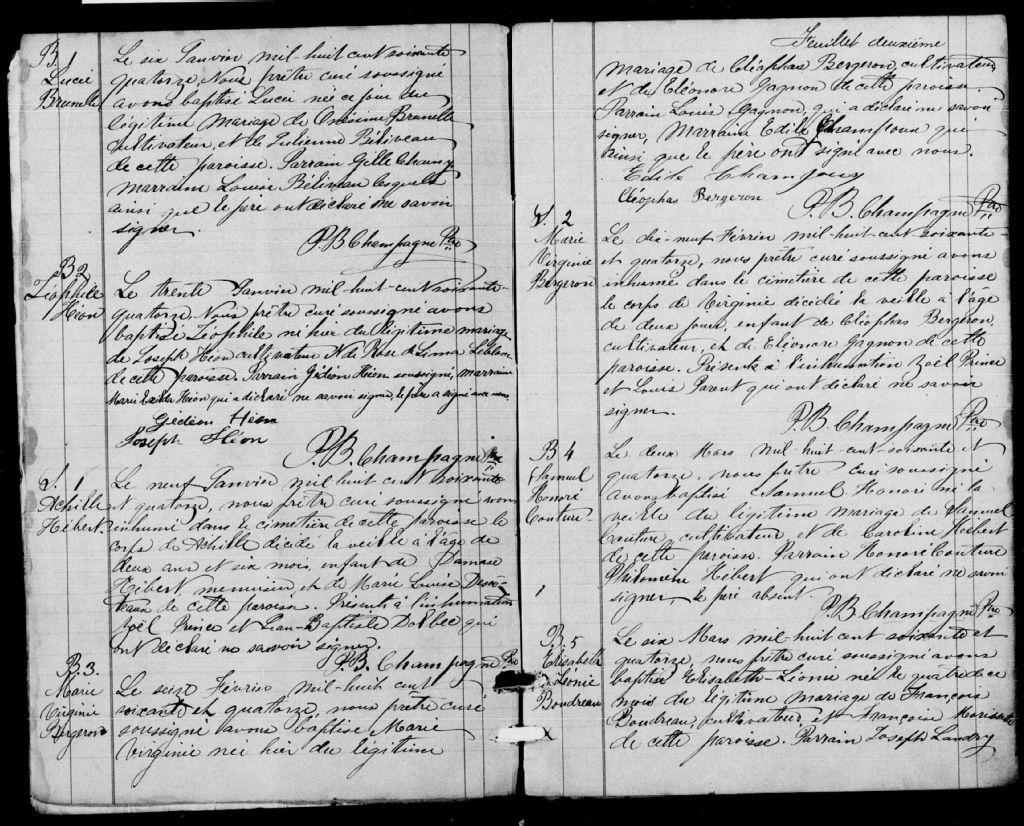 B. 1
Lucie
Brunelle
Le six Janvier mil huit cent soixante
quatorze, Nous prêtre curé soussigné
avons baptisé Lucie née ce jour du
légitime mariage de Onésime Brunelle
cultivateur, et de Julienne Béliveau
de cette paroisse. Parrain Gille
marraine Louise Béliveau lesquels
ainsi que le père ont déclaré ne savoir
signer.
P.B. Champagne Ptre
B 2
Léophile
Héon
Le trente Janvier mil huit cent soixante
quatorze. Nous prêtre curé soussigné avons
baptisé Léophile né hier du légitime mariage
de Joseph Héon cultivateur & de Rose de Lima Leblanc
de cette paroisse. Parrain Gédéon Héon soussigné, marraine
Marie Héon qui a déclaré ne savoir signer, le père a signé avec nous.
Gédéon Héon
Joseph Héon
P.B. Champagne Ptre
S. 1
Achille
Hébert.
Le neuf Janvier mil huit cent soixante
et quatorze, nous prêtre curé soussigné avons
inhumé dans le cimetière de cette paroisse le
corps de Achille décidé la veille à l'âge de
deux ans et six mois, enfant de Damase
Hébert, menuisier, et de Marie Louise Desco-
teaux de cette paroisse. Présents à l'inhumation
Zoël Prince et Jean-Baptiste Dolbec qui
ont déclaré ne savoir signer.
P.B. Champagne Ptre
B. 3.
Marie
Virginie
Bergeron
Le seize Février mil-huit cent
soixante et quatorze, nous prêtre curé
soussigné avons baptisé Marie
Virginie née hier du légitime
Feuillet deuxième
mariage de Cléophas Bergeron, cultivateur
et de Eléonore Gagnon de cette paroisse.
Parrain Louis Gagnon, qui a déclaré ne savoir
signer, Marraine Edile Champoux qui
ainsi que le père ont signé avec nous.
Edile Champoux
Cléophas Bergeron
P.B. Champagne Ptre
S. 2
Marie
Virginie
Bergeron
Le dix-neuf Février mil-huit-cent-soixante-
et quatorze, nous prêtre curé soussigné avons
inhumé dans le cimetière de cette paroisse
le corps de Virginie décidée la veille à l'âge
de deux jours, enfant de Cléophas Bergeron,
cultivateur, et de Eléonare Gagnon de cette
paroisse. Présents à l'inhumation Zoël Prince
et Louis Parent qui ont déclaré ne savoir
signer.
P.B. Champagne Ptre
B 4
Samuel
Honoré
Couture
Le deux Mars mil huit cent-soixante et
quatorze, nous prêtre curé soussigné
avons baptisé Samuel Honoré né la
veille du légitime mariage de Samuel
Couture, cultivateur et de Caroline Hébert
de cette paroisse. Parrain Honoré Couture
Philomène Hébert qui ont déclaré ne savoir
signer, le père absent.
P.B. Champagne Ptre
B. 5
Elisabeth
Léonie
Boudreau
Le six Mars mil huit cent soixante et
quatorze, nous prêtre curé soussigné avons
baptisé Elisabeth-Léonie née le quatre de ce
mois du légitime mariage de François
Boudreau, cultivateur, et Françoise
de cette paroisse. Parrain Joseph Landry